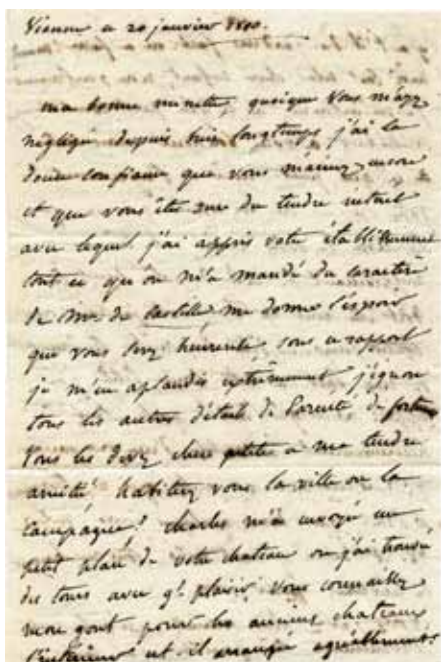 Vienne ce 20 janvier 1800.
ma bonne minette, quoique vous m'ayez
négligée depuis bien longtemps j'ai la
douce confiance que vous m'aimez encore
et que vous êtes sure du tendre intérêt
avec lequel j'ai appris votre établissement
tout ce qu'on m'a mandé du caractère
de Mr de Castille me donne l'espoir
que vous serez heureuse, sous ce rapport
je m'en aplaudis extrêmement, j'ignore
tous les autres détails de Parenté, de fortune
vous les devez chere petite a ma tendre
amitié habitez vous la ville ou la
campagne? charles m'a envoyé un
petit plan de votre chateau ou j'ai trouvé
des tours avec gd plaisir, vous connaissez
mon gout pour les anciens chateaux
l'intérieur est il arrangé agréablement